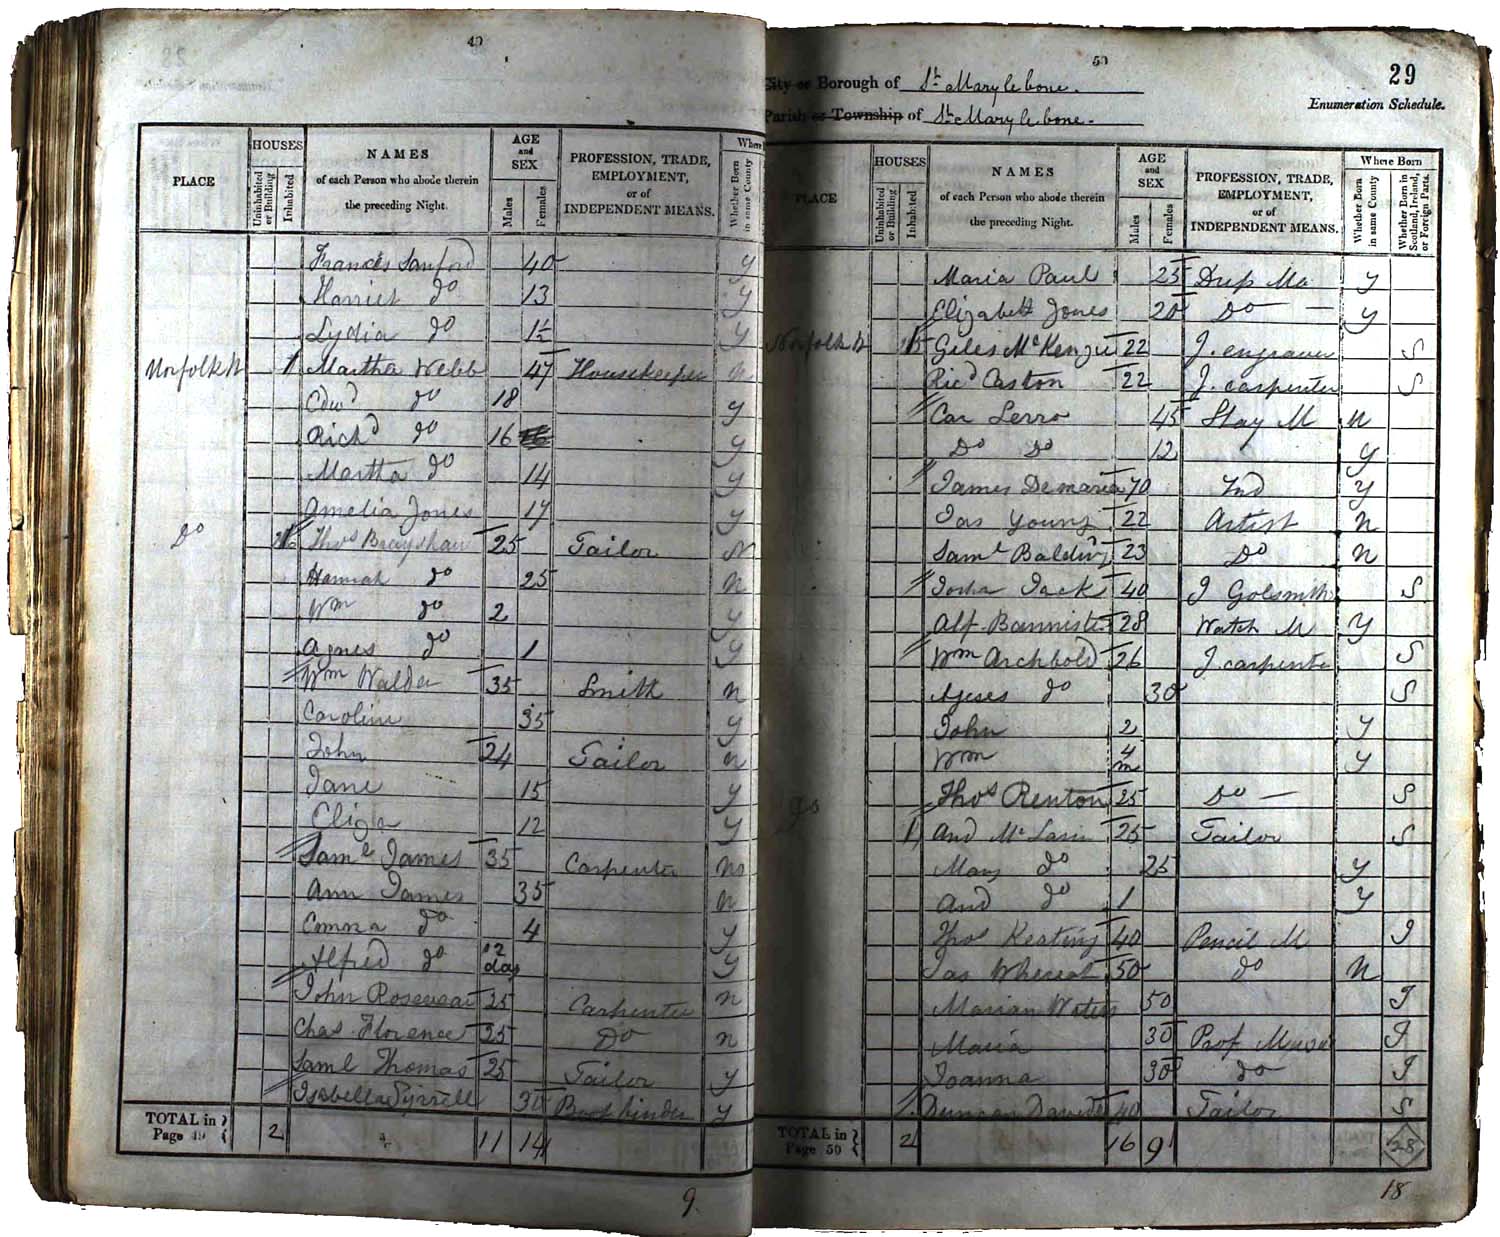 49
PLACE HOUSES NAMES AGE and SEX PROFESSION, TRADE, EMPLOYMENT, or of INDEPENDENT MEANS. Where
Uninhabited or Building Inhabited of each Person who abode therein the preceding Night. Males Females Whether Born in same County
Frances Sanford 40 y
Harriet do 13 y
Lydia do 1½ y
Norfolk St 1 Martha Webb 47 Housekeeper n
Edwd do 18 y
Richd do 16 y
Martha do 14 y
Amelia Jones 17 y
Do Thos Brayshaw 25 Tailor N
Hannah do 25 n
Wm do 2 y
Agnes do 1 y
Wm Walder 35 Smith n
Caroline 35 y
John 24 Tailor n
Jane 15 y
Eliza 12 y
Saml James 35 Carpenter no
Ann James 35 n
Emma do 4 y
Alfred do 12 day y
John Rosevear 25 Carpenter n
Chas Florence 25 Do n
Saml Thomas 25 Tailor y
Isabella Tyrrell 30 Bookbinder y
TOTAL in Page 49 2 11 14
9
50
City or Borough of St Marylebone.
Parish or Township of St Marylebone.
29
Enumeration Schedule.
PLACE HOUSES NAMES AGE and SEX PROFESSION, TRADE, EMPLOYMENT, or of INDEPENDENT MEANS. Where Born
Uninhabited or Building Inhabited of each Person who abode therein the preceding Night. Males Females Whether Born in same County Whether Born in Scotland, Ireland, or Foreign Parts.
Maria Paul 25 Drep Ma y
Elizabeth Jones 20 Do y
Norfolk St Giles McKenzie 22 J. engraver S
Ricd Caston 22 J. carpenter S
Car Lerro 45 Stay M n
Do Do 12 y
James Demaria 70 Ind y
Jas Young 22 Artist n
Saml Baldwin 23 Do n
Jack 40 J Golsmith S
Alf. Bannister 28 Watch M y
Wm Archbold 26 J. carpenter S
do 30 S
John 2 y
Wm 4 m y
Do Thos Renton 25 Do S
1 And McLarin 25 Tailor S
Mary do 25 y
And do 1 y
Thos Keating 40 Pencil M I
Jas Whereat 50 do n
Marian Waters 50 I
Maria 30 Prof Musi I
Joanna 30 do I
Duncan Davids 40 Tailor S
TOTAL in Page 50 2 16 9 28
18